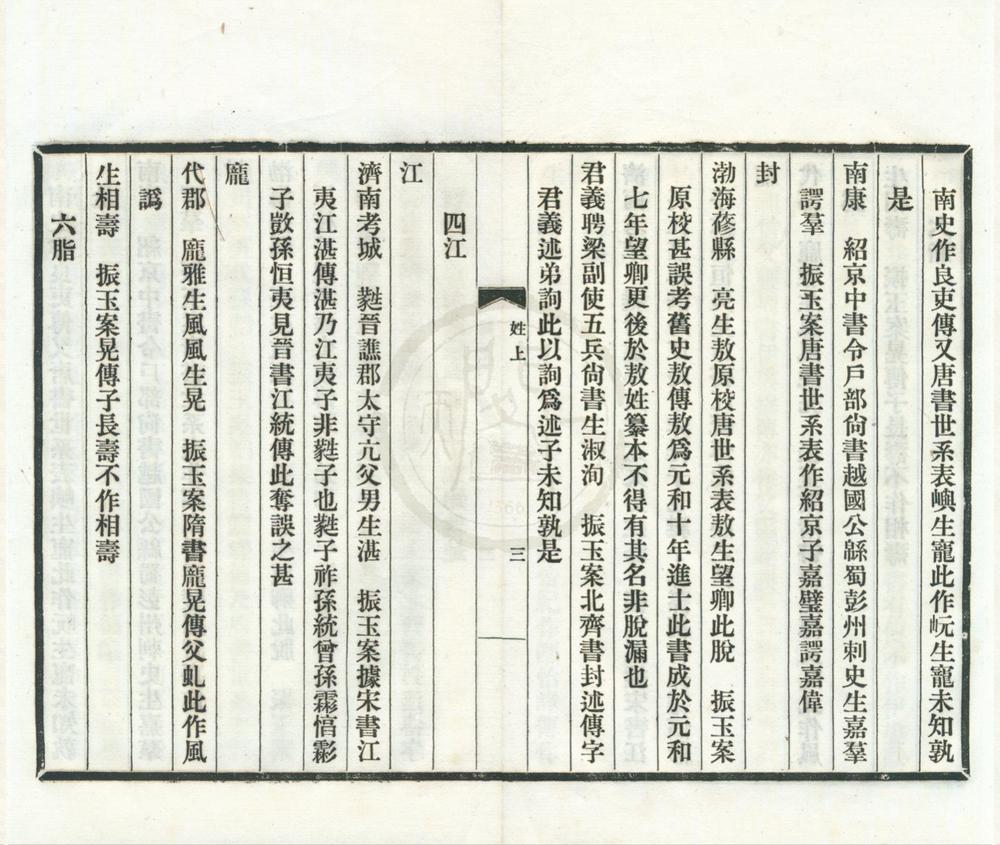 南史作良吏傳又唐書世系表嶼生寵此作岏生寵未知孰
是
南康　紹京中書令戶部尙書越國公緜蜀彭州刺史生嘉羣
諤羣　振玉案唐書世系表作紹京子嘉璧嘉諤嘉偉
封
渤海蓨縣　亮生敖原校唐世系表敖生望卿此脫　振玉案
原校甚誤考舊史敖傳敖爲元和十年進士此書成於元和
七年望卿更後於敖姓纂本不得有其名非脫漏也
君義聘梁副使五兵尙書生淑洵　振玉案北齊書封述傳字
君義述弟詢此以詢爲述子未知孰是
姓上
三
四江
江
濟南考城　蕤晉譙郡太守亢父男生湛　振玉案據宋書江
夷江湛傳湛乃江夷子非蕤子也蕤子祚孫統曾孫霦惇彪
子敳孫恒夷見晉書江統傳此奪誤之甚
龐
代郡　龐雅生風風生晃　振玉案隋書龐晃傳父虬此作風
譌
生相壽　振玉案晃傳子長壽不作相壽
六脂